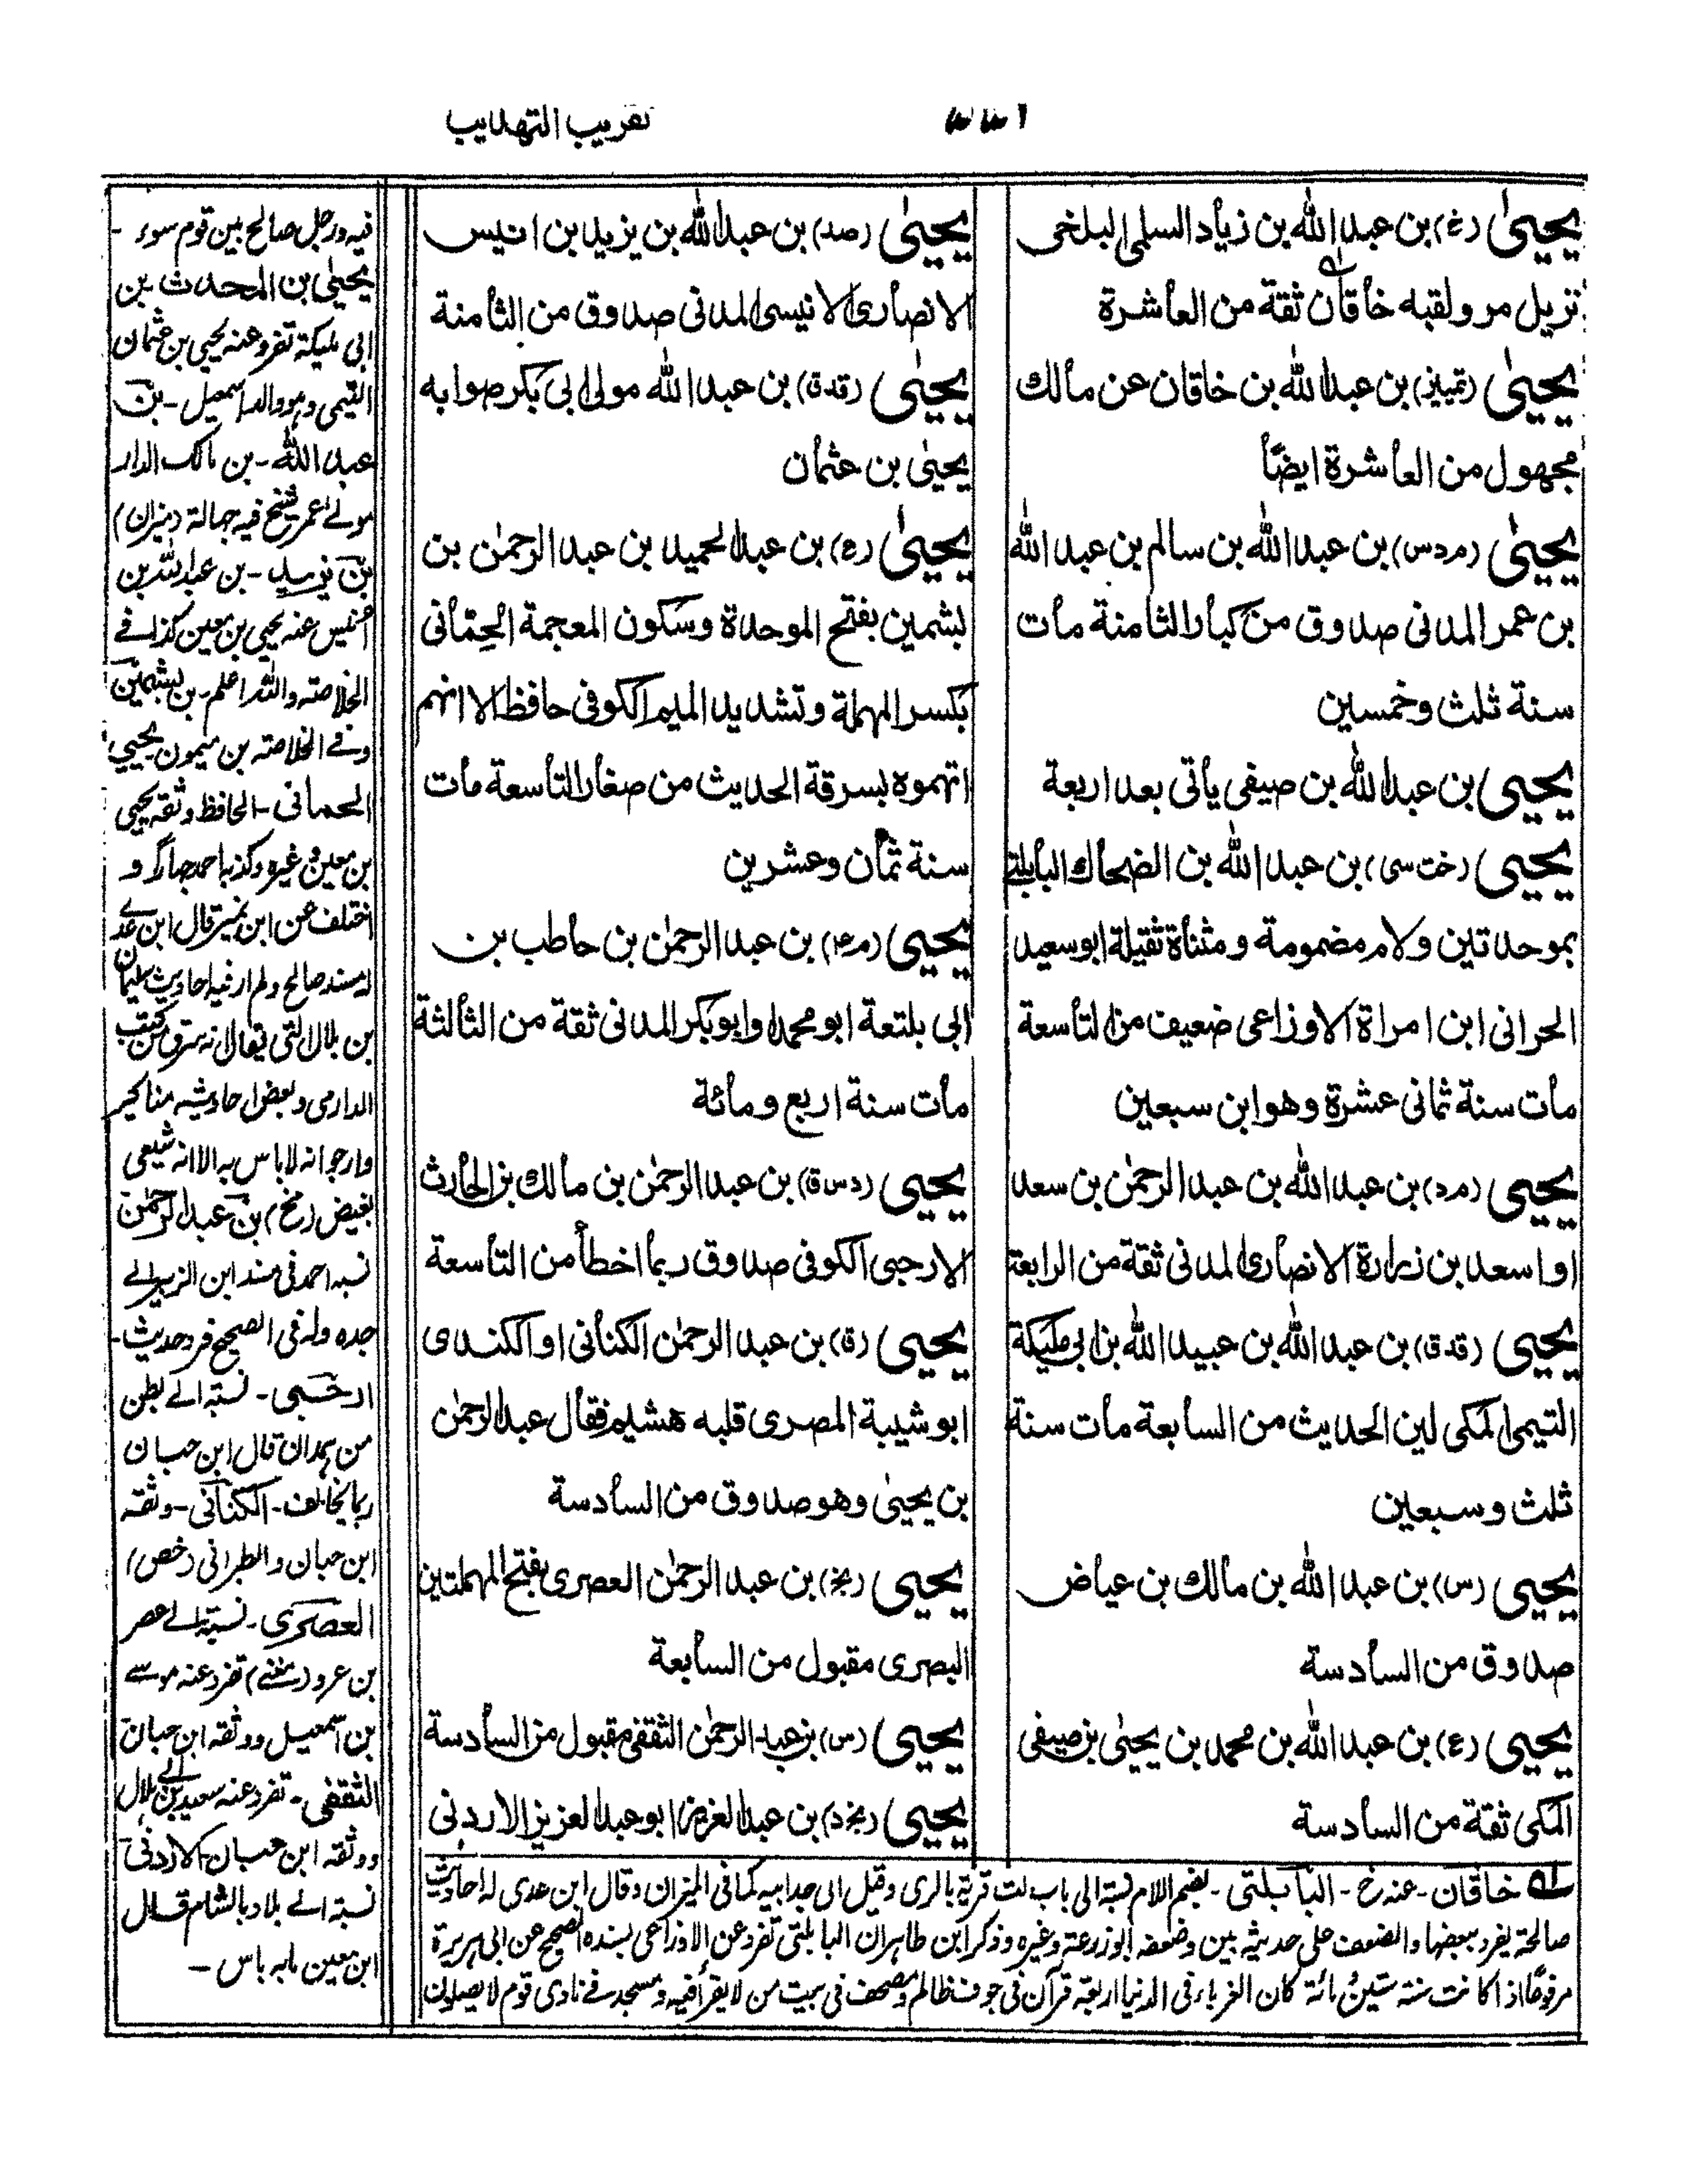 تقريب التهذيب
يحيىٰ (خ) بن عبد الله بن زياد السلمى البلخى
نزيل مرو لقبه خاقان ثقة من العاشرة
يحيىٰ (تمييز) بن عبد الله بن خاقان عن مالك
مجهول من العاشرة ايضًا
يحيىٰ (مدس) بن عبد الله بن سالم بن عبد الله
بن عمر المدنى صدوق من كبار الثامنة مات
سنة ثلث وخمسين
يحيى بن عبد الله بن صيفى يأتى بعد اربعة
يحيى (خت سى) بن عبد الله بن الضحاك البابلتى
بموحدتين ولام مضمومة ومثناة ثقيلة ابو سعيد
الحرانى ابن امراة الاوزاعى ضعيف من التاسعة
مات سنة ثمانى عشرة وهو ابن سبعين
يحيى (مد) بن عبد الله بن عبد الرحمٰن بن سعد
او اسعد بن زرارة الانصارى المدنى ثقة من الرابعة
يحيى (قدق) بن عبد الله بن عبيد الله بن ابى مليكة
التيمى المكى لين الحديث من السابعة مات سنة
ثلث وسبعين
يحيى (س) بن عبد الله بن مالك بن عياض
صدوق من السادسة
يحيى (ع) بن عبد الله بن محمد بن يحيىٰ بن صيفى
المكى ثقة من السادسة
يحيىٰ (صد) بن عبد الله بن يزيد بن انيس
الانصارى الانيسى المدنى صدوق من الثامنة
يحيىٰ (قدق) بن عبد الله مولى ابى بكر صوابه
يحيىٰ بن عثمان
يحيىٰ (م) بن عبد الحميد بن عبد الرحمٰن بن
بشمين بفتح الموحدة وسكون المعجمة الحِمّانى
بكسر المهملة وتشديد الميم الكوفى حافظ الا انهم
اتهموه بسرقة الحديث من صغار التاسعة مات
سنة ثمان وعشرين
يحيى (مع) بن عبد الرحمٰن بن حاطب بن
ابى بلتعة ابو محمد او ابو بكر المدنى ثقة من الثالثة
مات سنة اربع ومائة
يحيى (دسق) بن عبد الرحمٰن بن مالك بن الحارث
الارحبى الكوفى صدوق ربما اخطأ من التاسعة
يحيى (ق) بن عبد الرحمٰن الكنانى او الكندى
ابو شيبة المصرى قلبه هشيم فقال عبد الرحمٰن
بن يحيىٰ وهو صدوق من السادسة
يحيى (بخ) بن عبد الرحمٰن العصرى بفتح المهملتين
البصرى مقبول من السابعة
يحيى (س) بن عبد الرحمٰن الثقفى مقبول من السادسة
يحيى (بخ د) بن عبد العزيز ابو عبد العزيز الاردنى
فيه ورجل صالح بين قوم سوء -
يحيىٰ بن المحدث بن
ابى مليكة تفرد عنه يحيى بن عثمان
التيمى وهو والد اسمعيل - بن
عبد الله - بن مالك الدار
مولے عمر شيخ فيه جهالة (ميزان)
بن يزيد - بن عبد الله بن
انيس عنه يحيى بن معين كذا فے
الخلاصة والله اعلم - بن بشمين
وفے الخلاصة بن ميمون يحيى
الحمانى - الحافظ وثقه يحيى
بن معين وغيره وكذبه احمد جهارا و
اختلف عن ابن نمير قال ابن عدے
له مسند صالح ولم ار فيه احاديث سليمان
بن بلال التى يقال انه سرق من كتب
الدارمى وبعض احاديثه مناكير
وارجو انه لا باس به الا انه شيعى
بغيض (مخ) بن عبد الرحمٰن
نسبه احمد فى مسند ابن الزبير الے
جده وله فى الصحيح فرد حديث -
ارحبى - نسبة الے بطن
من همدان قال ابن حبان
ربما يخالف - الكنانى - وثقه
ابن حبان والطبرانى (خص)
العصرى - نسبة الے عصر
بن عمرو (مغنے) تفرد عنه موسے
بن اسمعيل ووثقه ابن حبان
الثقفى - تفرد عنه سعيد بن ابے هلال
ووثقه ابن حبان الاردنى
نسبة الے بلاد بالشام قال
ابن معين ما به باس -
له خاقان - عنه خ - البابلتى - بضم اللام نسبة الى باب لت قرية بالرى وقيل الى جد ابيه كما فى الميزان وقال ابن عدى له احاديث
صالحة يفرد ببعضها والضعف على حديثه بين وضعفه ابو زرعة وغيره وذكر ابن طاهر ان البابلتى تفرد عن الاوزاعى بسنده الصحيح عن ابى هريرة
مرفوعًا اذا كانت سنة ستين ومائة كان الغرباء فى الدنيا اربعة قرآن فى جوف ظالم ومصحف فى بيت من لا يقرأ فيه ومسجد فے نادى قوم لا يصلون